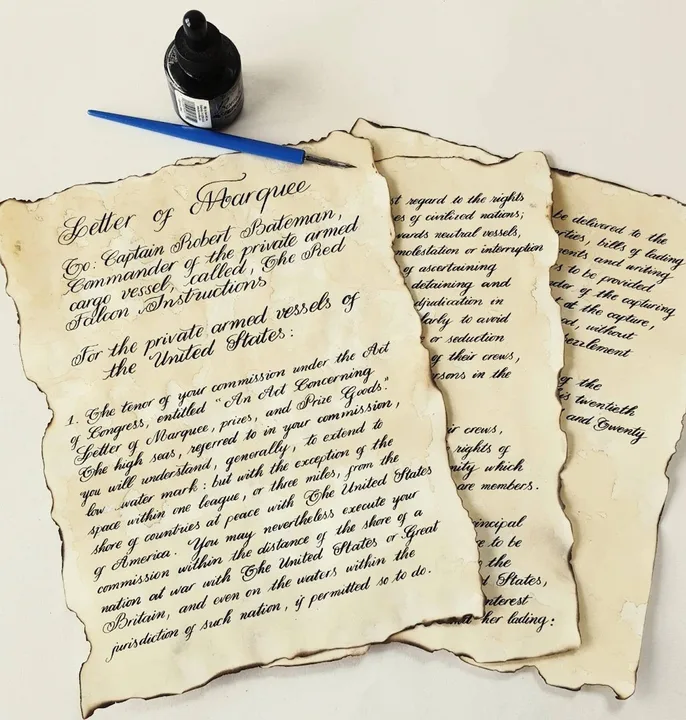 Letter of Marquee
To: Captain Robert Bateman,
Commander of the private armed
cargo vessel, called, The Red
Falcon Instructions
For the private armed vessels of
the United States:
1. The tenor of your commission under the Act
of Congress, entitled "An Act Concerning
Letter of Marquee, prizes, and Prize Goods".
The high seas, referred to in your commission,
you will understand, generally, to extend to
low water mark: but with the exception of the
space within one league, or three miles, from the
shore of countries at peace with The United States
of America. You may nevertheless execute your
commission within the distance of the shore of a
nation at war with The United States or Great
Britain, and even on the waters within the
jurisdiction of such nation, if permitted so to do.
st regard to the rights
es of civilized nations;
wards neutral vessels,
molestation or interruption
of ascertaining
detaining and
djudication in
larly to avoid
or seduction
of their crews,
rsons in the
ir crews,
rights of
nity which
are members.
incipal
ce to be
the
d States,
nterest
her lading:
be delivered to the
rties, bills of lading
ments and writing
s to be provided
der of the capturing
at the capture,
ed, without
ezzlement
of the
es twentieth
and Twenty